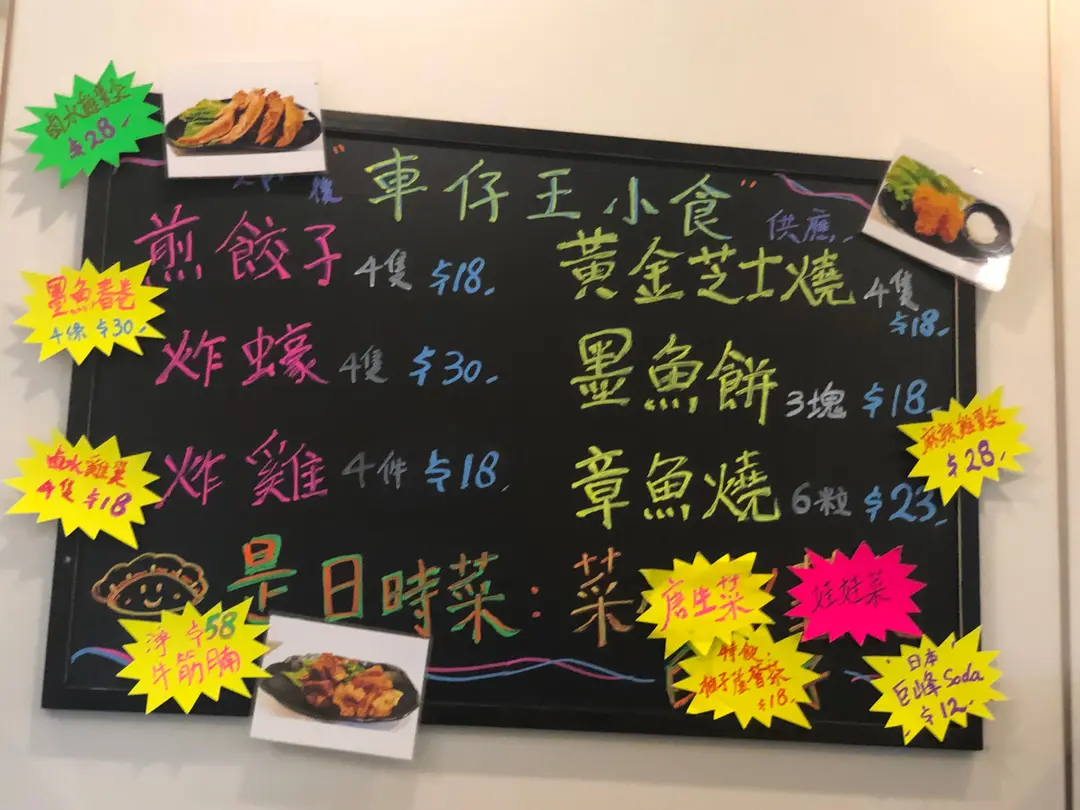 鹵水雞翼尖
$28.
"車仔王小食"
後
供應
煎餃子 4隻 $18.
黃金芝士燒 4隻
$18.
墨魚春卷
4條 $30.
炸蠔 4隻 $30.
墨魚餅 3塊 $18.
麻辣雞翼尖
$28.
鹵水雞翼
4隻 $18
炸雞 4件 $18.
章魚燒 6粒 $23.
是日時菜：菜
唐生菜
娃娃菜
淨 $58
牛筋腩
特飲
柚子蘆薈茶
$18.
日本
巨峰Soda
$12.